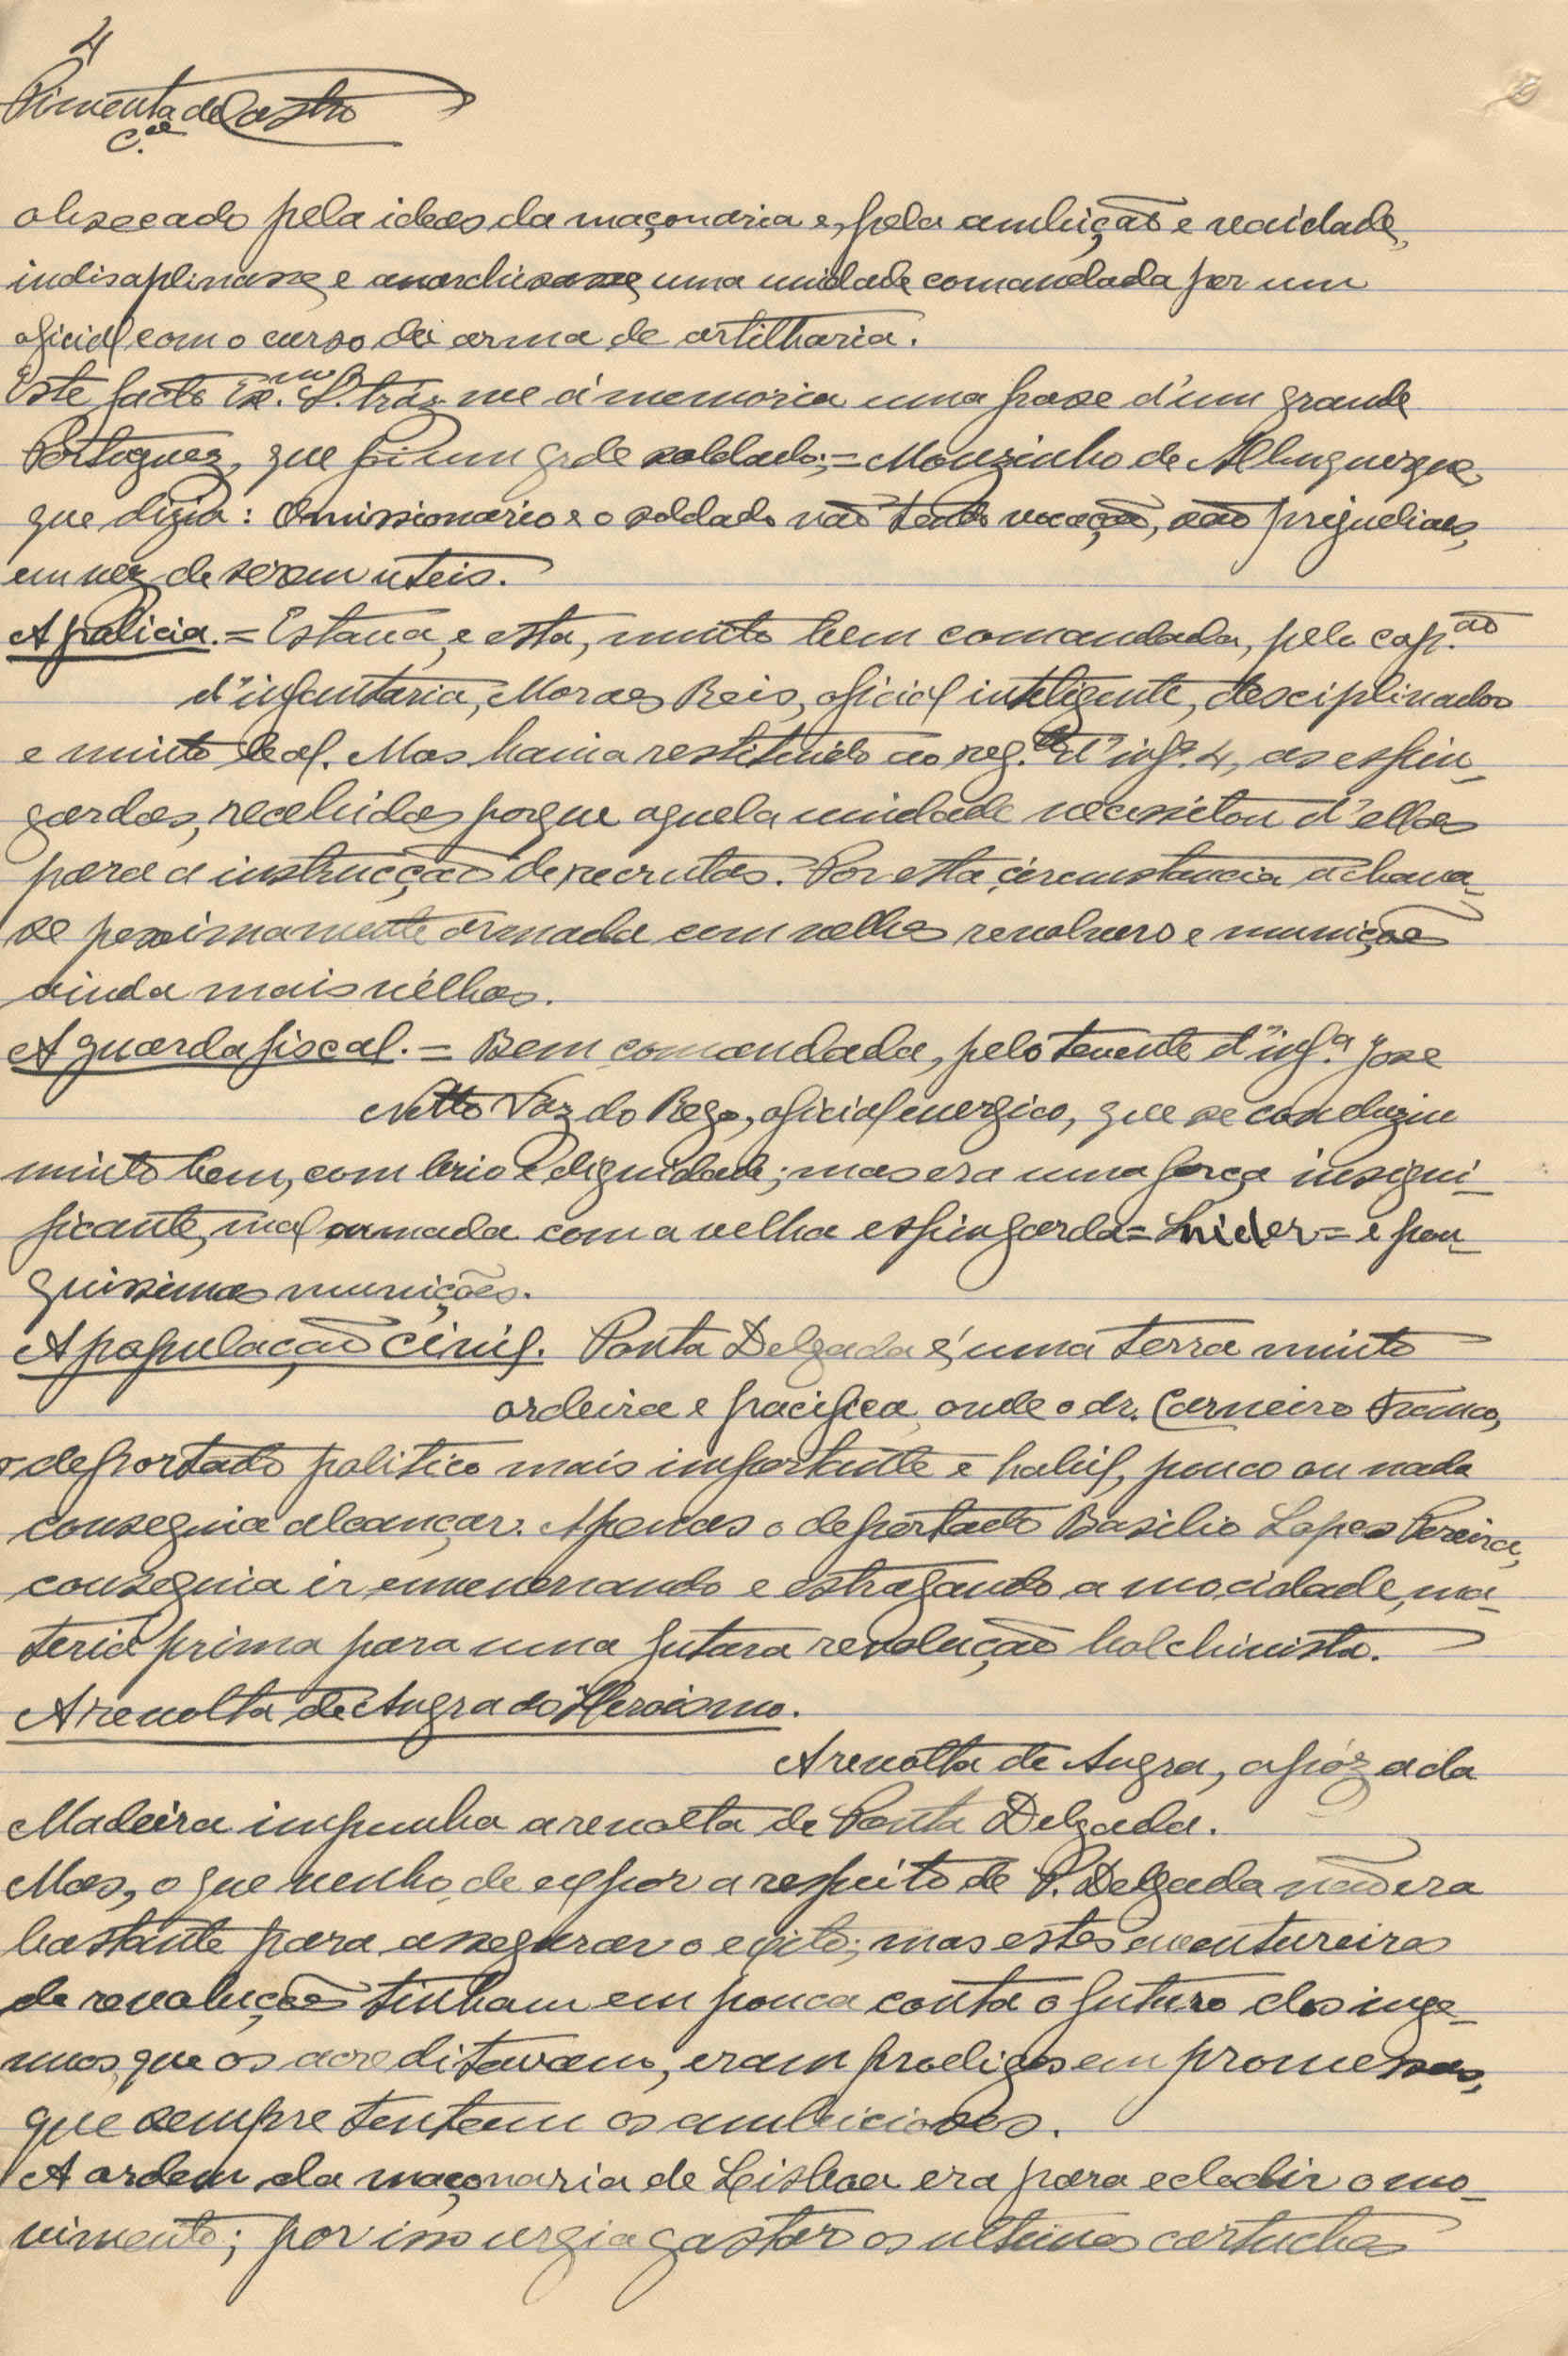 4
Pimenta de Castro
C.el
obsecado pela ideas da maçonaria e, pela ambição e vaidade,
indisaplinasse e anarchisasse uma unidade comandada por um
oficial com o curso da arma de artilharia.
Este facto Ex.mo S.r tráz-me á memoria uma frase d'um grande
Portuguez, que foi um grde soldado; = Mouzinho de Albuquerque,
que dizia: O missionario e o soldado não tendo vocação, são prejudiaes,
em vez de serem uteis.
A policia. = Estava, e esta, muito bem comandada, pelo cap.ão
d'infantaria, Moraes Reis, oficial inteligente, desciplinador
e muito leal. Mas havia restituido ao reg.to d'inf.ª 4, as espin-
gardas, recebidas porque aquela unidade necessitou d'ellas
para a instrucção de recrutas. Por esta circumstancia achava-
se pessimamente armada com velhos revolvers e munições
ainda mais vélhas.
A guarda fiscal. = Bem comandada, pelo tenente d'inf.ª José
Netto Vaz do Rego, oficial energico, que se conduziu
muito bem, com brio e dignidade; mas era uma força insigni-
ficante, mal armada com a velha espingarda = Snider = e pou-
quissimas munições.
A população civil. Ponta Delgada é uma terra muito
ordeira e pacifica, onde o dr. Carneiro Franco,
o deportado politico mais importante e habil, pouco ou nada
conseguia alcançar. Apenas o deportado Basilio Lopes Pereira,
conseguia ir envenenando e estragando a mocidade, ma-
teria prima para uma futura revolução bolchivista.
A revolta de Angra do Heroismo.
A revolta de Angra, apóz a da
Madeira impunha a revolta de Ponta Delgada.
Mas, o que venho de expor a respeito de P. Delgada não era
bastante para assegurar o exito; mas estes aventureiros
da revoluções tinham em pouca conta o futuro dos inge-
nuos que os acreditavam, eram prodigos em promessas,
que sempre tentam os ambiciosos.
A ordem da maçonaria de Lisboa era para eclodir o mo-
vimento; por isso urgia gastar os ultimos cartuchos